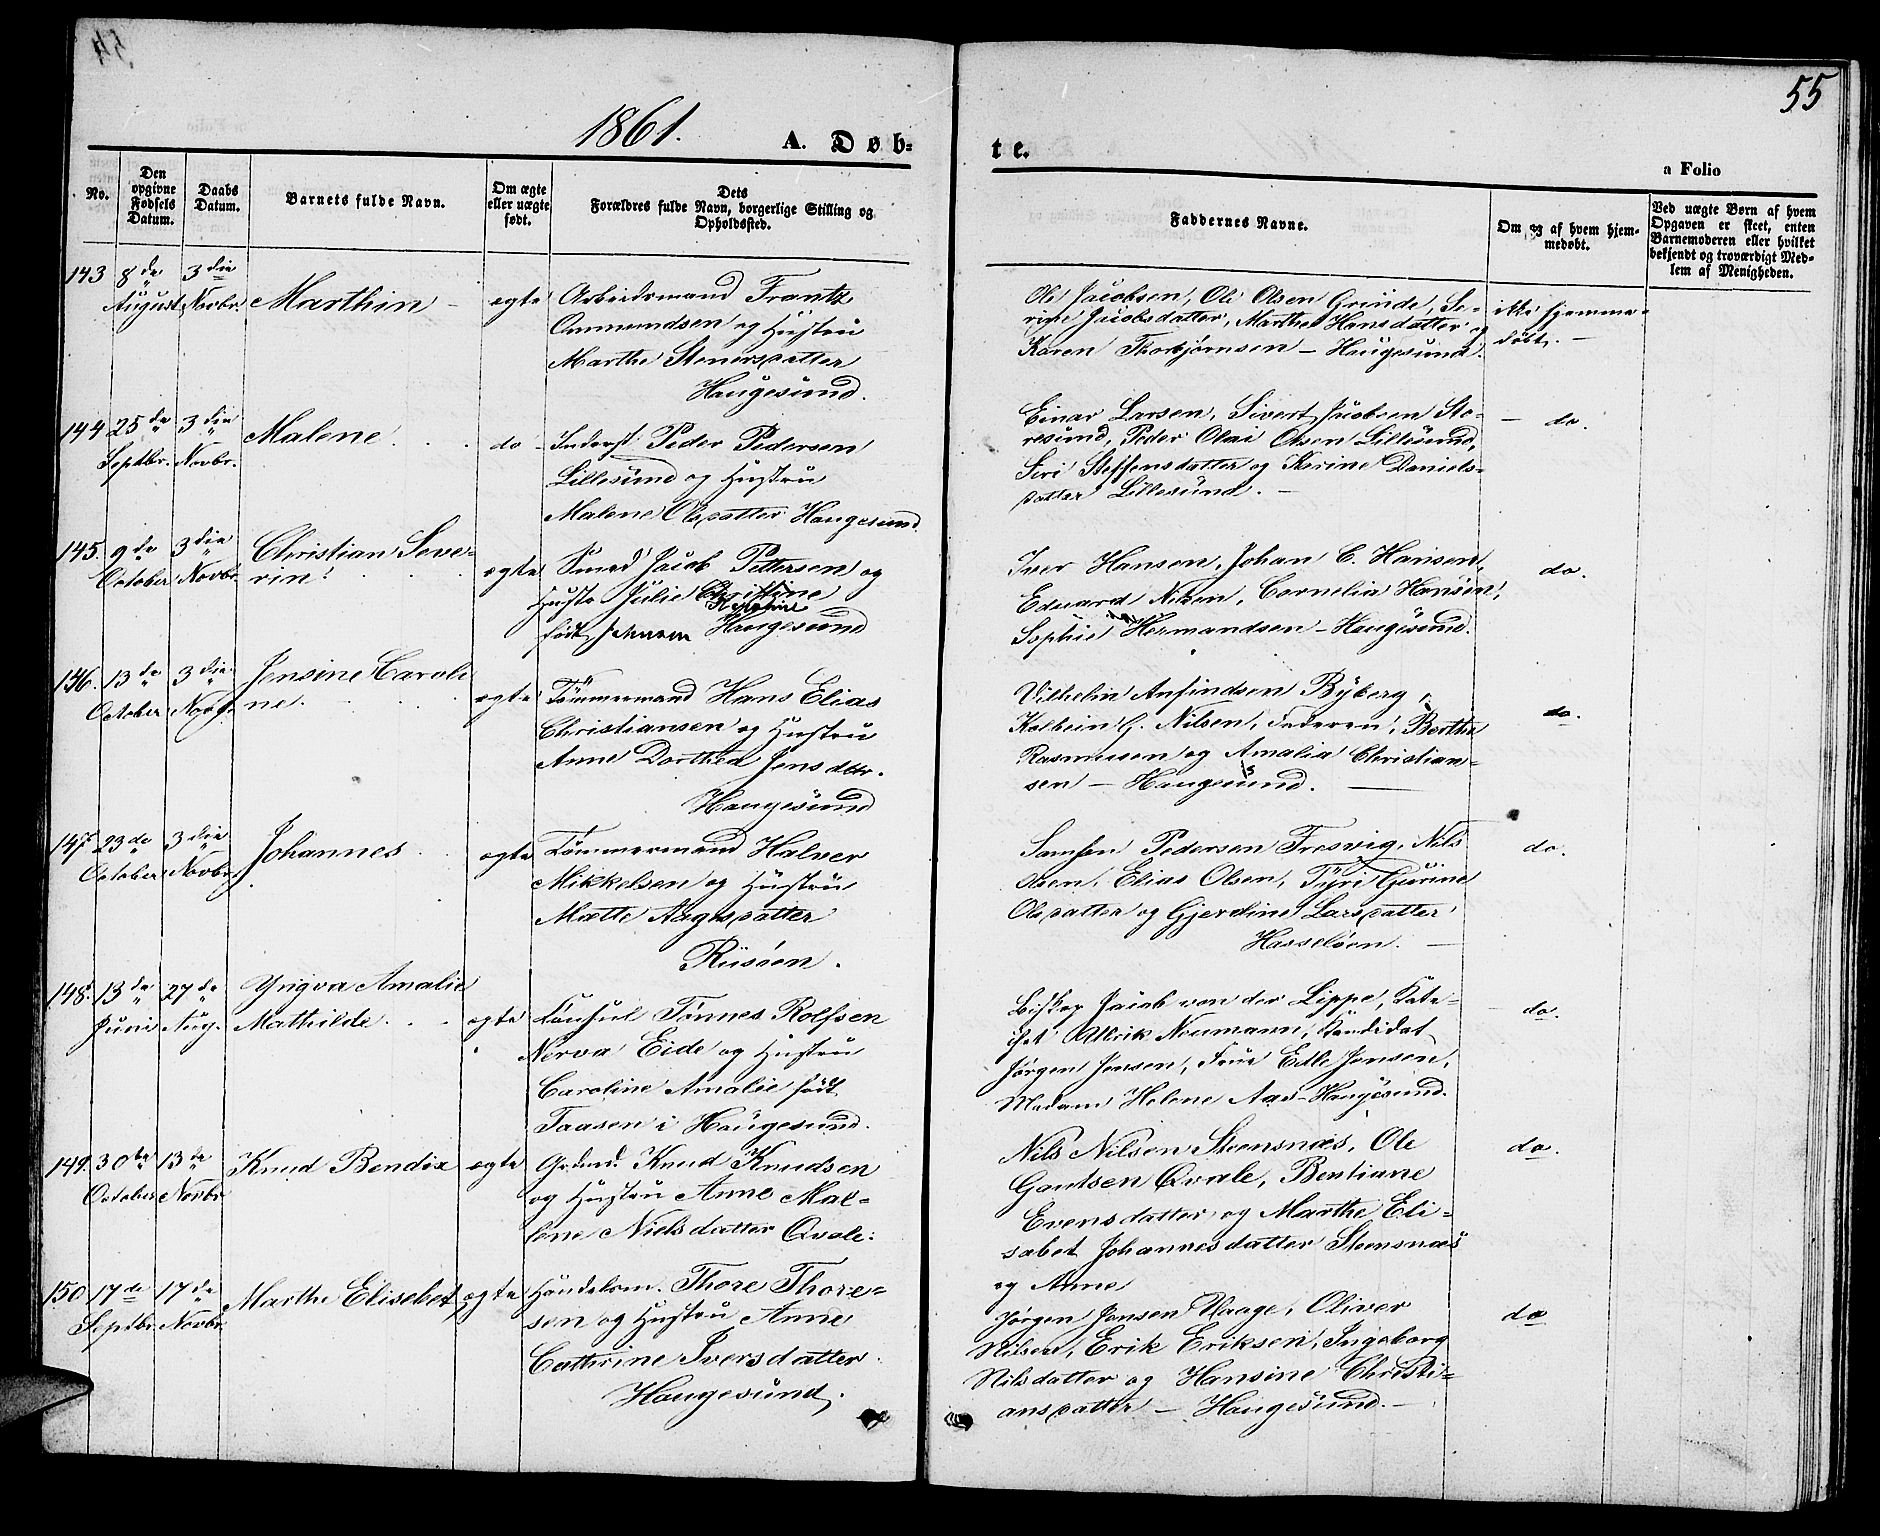 55
1861.
A. Døb-
te.
a Folio
No.
Den opgivne Fødsels Datum.
Daabs Datum.
Barnets fulde Navn.
Om ægte eller uægte født.
Dets Forældres fulde Navn, borgerlige Stilling og Opholdssted.
Faddernes Navne.
Om og af hvem hjemmedøbt.
Ved uægte Børn af hvem Opgaven er skeet, enten Barnemoderen eller hvilket bekjendt og troværdigt Medlem af Menigheden.
143 8de August 3die Novbr. Marthin ægte
Arbeidsmand Frantz
Ommundsen og Hustru
Marthe Stenersdatter
Haugesund.
Ole Jacobsen, Ole Olsen Grinde, Se-
rine Jacobsdatter, Marthe Hansdatter og
Karen Thorbjørnsen - Haugesund.
ikke hjemme-
døbt. -
144 25de Septbr. 3die Novbr. Malene do
Inderst Peder Pedersen
Lillesund og Hustru
Malene Olsdatter Haugesund
Einar Larsen, Sivert Jacobsen Sto-
resund, Peder Olai Olsen Lillesund,
Siri Steffensdatter og Serine Daniels-
datter Lillesund. -
do.
145. 9de October 3die Novbr. Christian Seve-
rin ægte
Smed Jacob Pettersen og
Hustr. Julie Christine
født Haugesund
Iver Hansen, Johan C. Hansen,
Eduard Nilsen, Cornelia Hansen,
Sophie Hermandsen - Haugesund.
do.
146. 13de October 3die Novbr. Jensine Caroli
ne ægte
Tømmermand Hans Elias
Christiansen og Hustru
Anne Dorthea Jensdtr.
Haugesund
Vilhelm Anfindsen Byberg,
Kolbein G. Nilsen, Faderen, Berthe
Rasmussen og Amalia Christian-
sen - Haugesund.
do.
147. 23de October 3die Novbr. Johannes ægte
Tømmermand Halver
Mikkelsen og Hustru
Mætte Aagesdatter
Risøen.
Samson Pedersen Fresvig, Nils
Olsen, Elias Olsen, Tyri Gurine
Olsdatter og Gjerdine Larsdatter
Hasseløen. -
do.
148. 13de Juni 27de Aug. Yngva Amalie
Mathilde ægte
Consul Tønnes Rolfsen
Nerva Eide og Hustru
Caroline Amalie født
Taasen i Haugesund.
Biskop Jacob von der Lippe, Kate-
chet Ulrik Neumann, Kandidat
Jørgen Jensen, Frue Edle Jensen,
Madam Helene Aas - Haugesund.
do.
149. 30te October 13de Novbr Knud Bendix ægte
Grdmd. Knud Knudsen
og Hustru Anne Mal-
lene Nielsdatter Qvale:
Nils Nilsen Steensnæs, Ole
Gautsen Qvale, Bentiane
Evensdatter og Marthe Eli-
sabet Johannesdatter Steensnæs
og Anne
do.
150 17de Septbr. 17de Novbr. Marthe Elisebet ægte
Handelsm. Thore Thore-
sen og Hustru Anne
Cathrine Iversdatter
Haugesund.
Jørgen Jensen Vaage, Oliver
Nilsen, Erik Eriksen, Ingeborg
Nilsdatter og Hansine Christi-
ansdatter - Haugesund. -
do